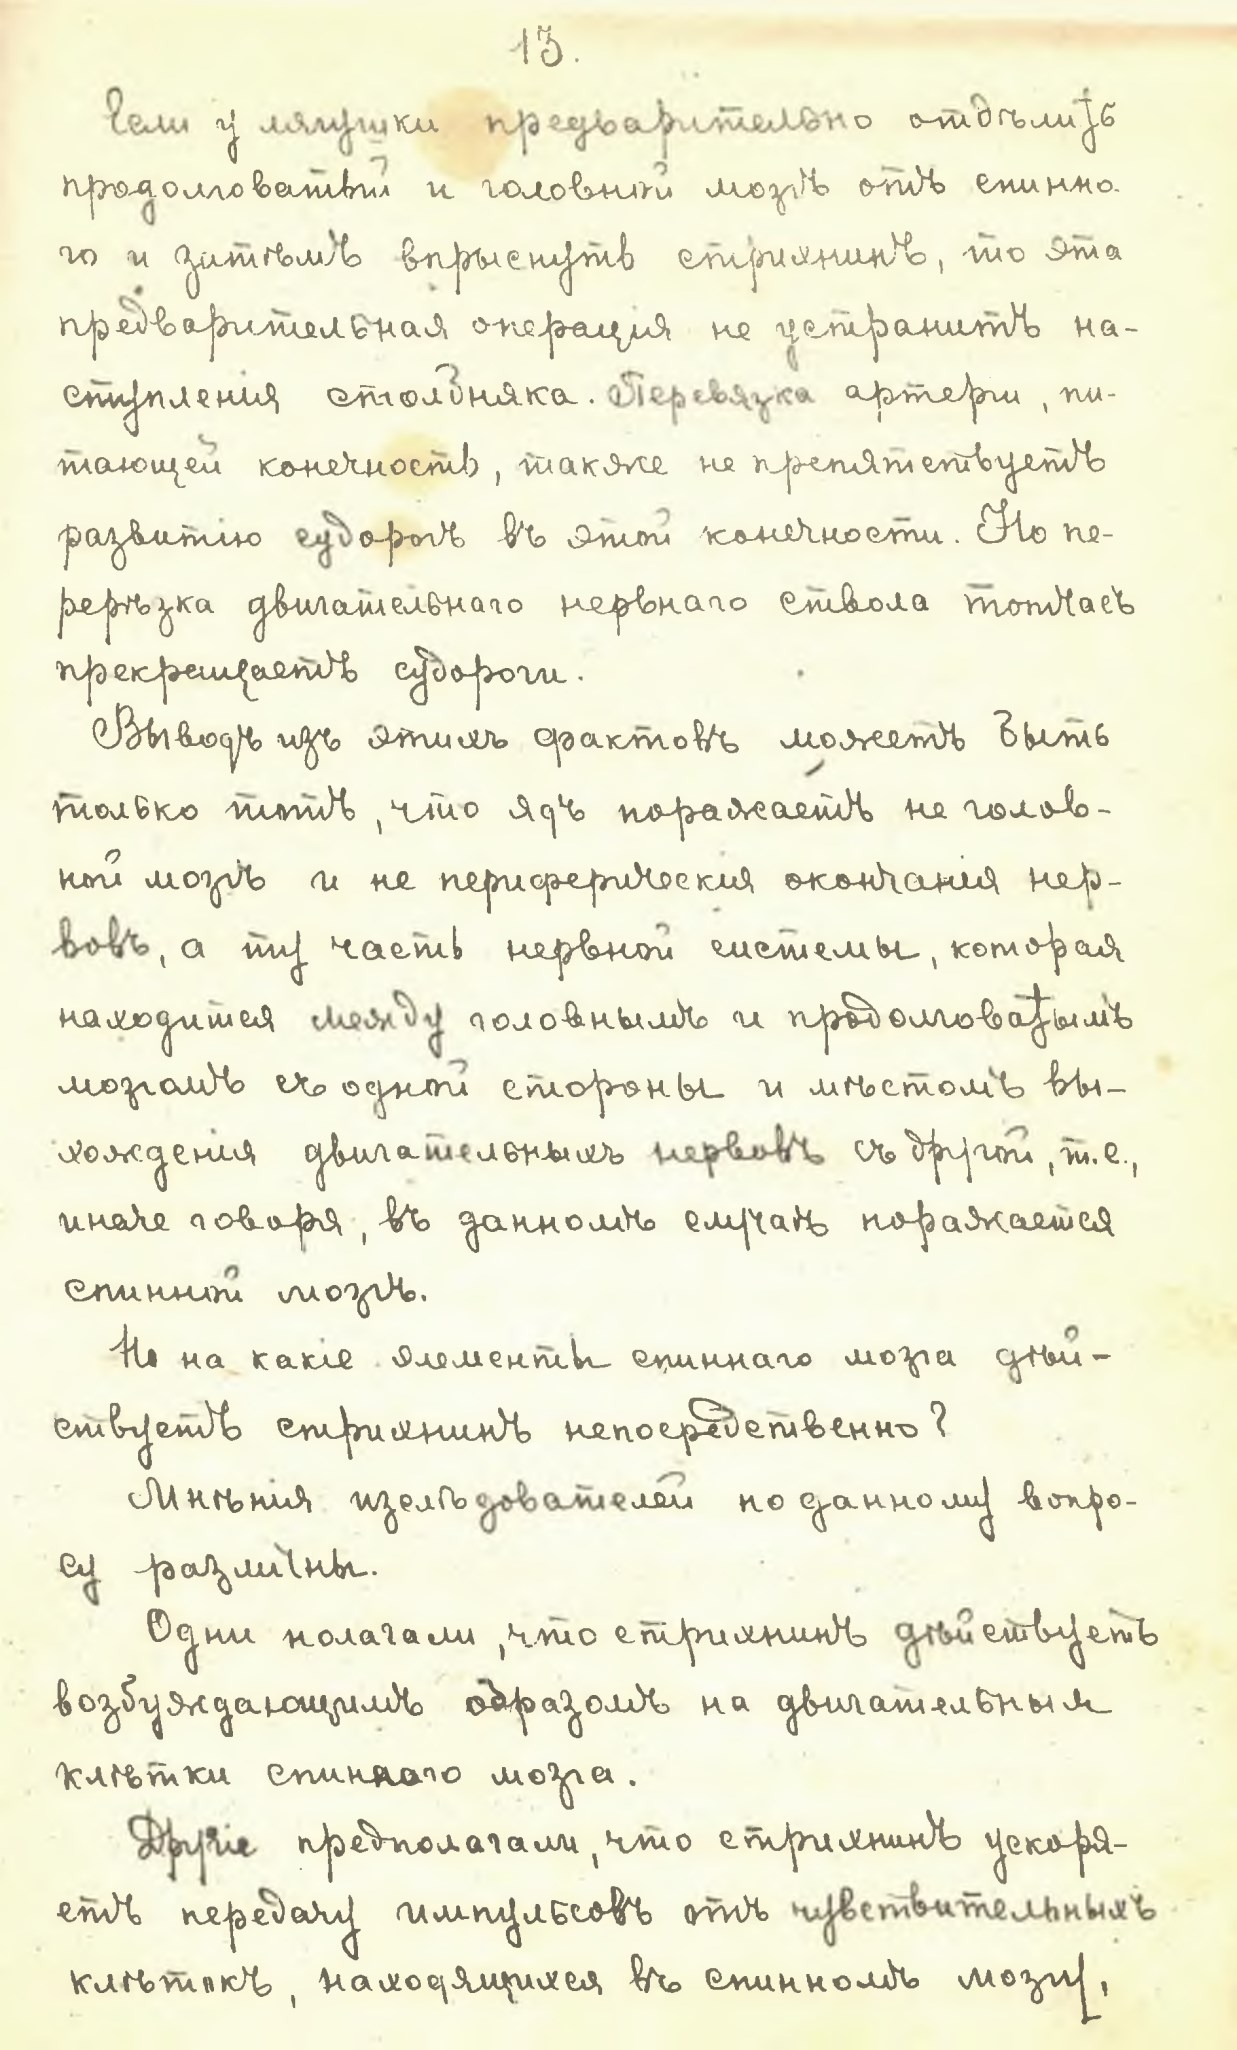 13.
Если у лягушки предварительно отдѣлить
продолговатый и головной мозгъ отъ спинно-
го и затѣмъ впрыснуть стрихнинъ, то эта
предварительная операція не устранитъ на-
ступленія столбняка. Перевязка артеріи, пи-
тающей конечность, также не препятствуетъ
развитію судорогъ въ этой конечности. Но пе-
рерѣзка двигательнаго нервнаго ствола тотчасъ
прекращаетъ судороги.
Выводъ изъ этихъ фактовъ можетъ быть
только тотъ, что ядъ поражаетъ не голов-
ной мозгъ и не периферическія окончанія нер-
вовъ, а ту часть нервной системы, которая
находится между головнымъ и продолговатымъ
мозгомъ съ одной стороны и мѣстомъ вы-
хожденія двигательныхъ нервовъ съ другой, т.е.,
иначе говоря, въ данномъ случаѣ поражается
спинной мозгъ.
Но на какіе элементы спиннаго мозга дѣй-
ствуетъ стрихнинъ непосредственно?
Мнѣнія изслѣдователей по данному вопро-
су различны.
Одни полагали, что стрихнинъ дѣйствуетъ
возбуждающимъ образомъ на двигательныя
клѣтки спинного мозга.
Другіе предполагали, что стрихнинъ ускоря-
етъ передачу импульсовъ отъ чувствительныхъ
клѣтокъ, находящихся въ спинномъ мозгу,